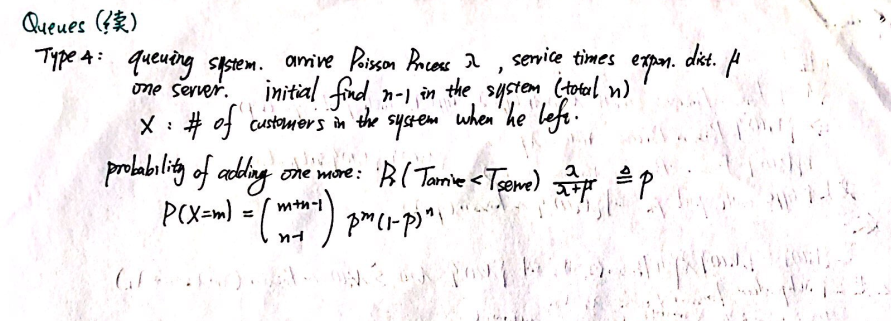 Queues (续)
Type 4: queuing system. arrive Poisson Process λ, service times expon. dist. μ
one server. initial find n-1 in the system (total n)
X: # of customers in the system when he left.
probability of adding one more: Pr(Tarrive < Tserve) λ/(λ+μ) ≜ p
P(X=m) = (m+n-1 n-1) p^m (1-p)^n